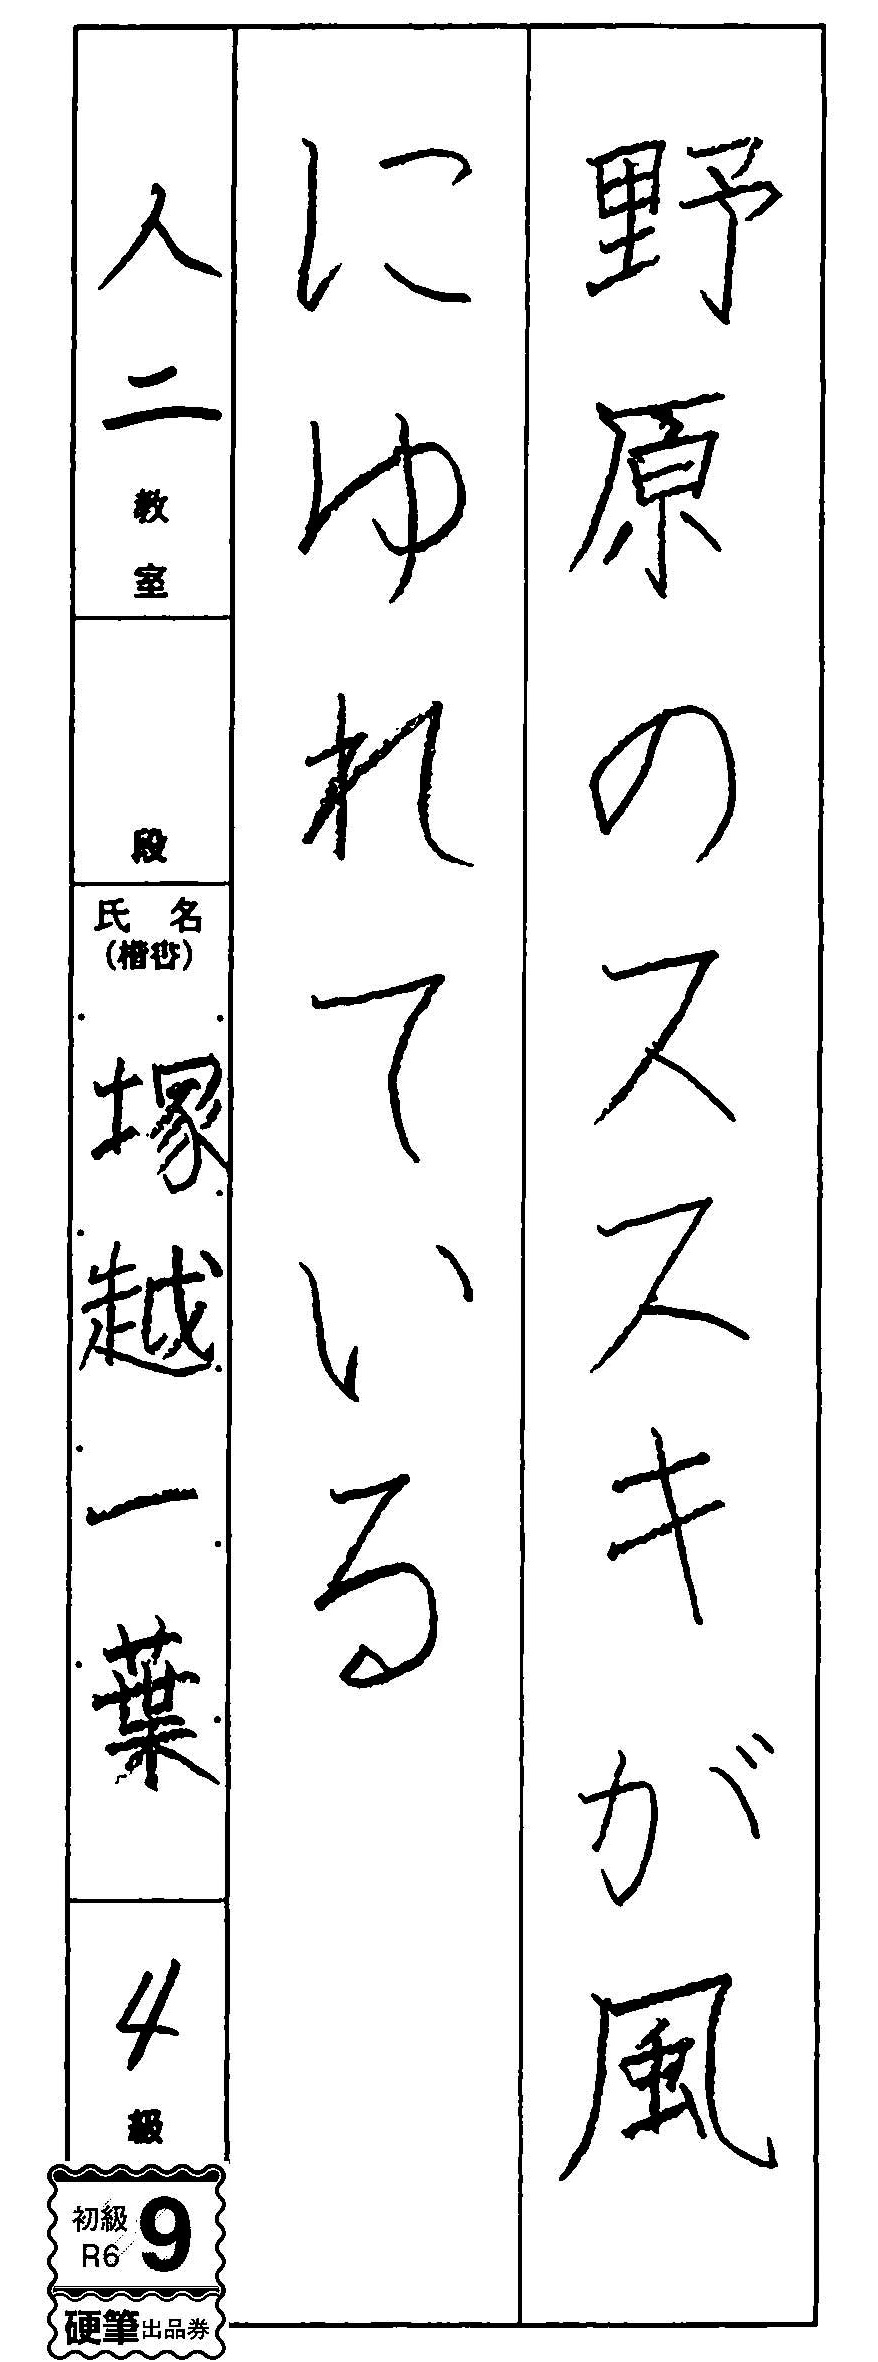 野原のススキが風
にゆれている
人二教室
段
氏名
(楷書)
塚越一葉
4級
初級
R6
9
硬筆出品券